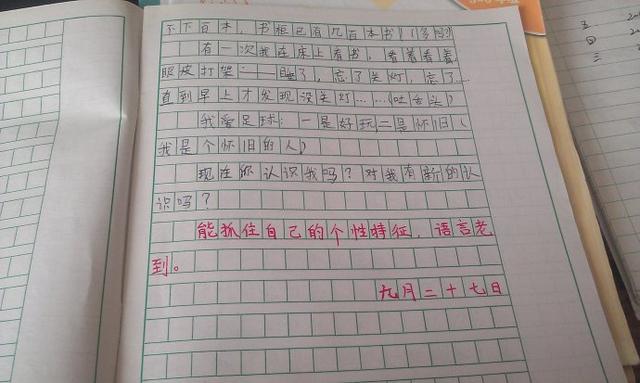 不下百本，书柜已有几百本书！（多吗）
有一次我在床上看书，看着看着
眼皮打架——睡了，忘了关灯，忘了…
直到早上才发现没关灯……（吐舌头）
我爱足球：一是好玩二是怀旧（
我是个怀旧的人）
现在你认识我吗？对我有新的认
识吗？
能抓住自己的个性特征，语言老
到。
九月二十七日
五
四
三